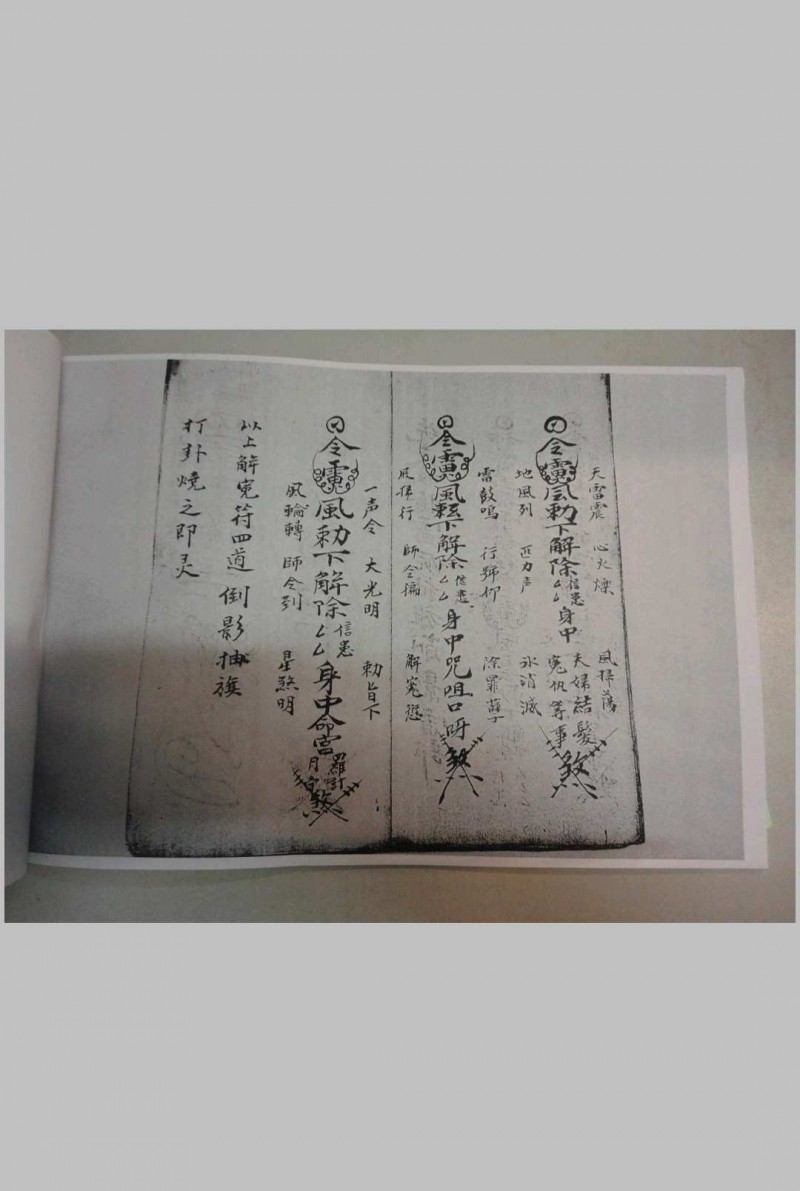 天雷震 心火燥 風掃蕩
令 風勅下解除信患厶厶身中夫婦結髮冤仇等事煞
地風列 匹力声 氷消滅
雷鼓鳴 行號仰 除罪
令 風 下解除信患厶厶身中咒咀口呀煞
風掃行 師令 解冤愆
一声令 大光明 勅旨下
令 風勅下解除信患厶厶身中命宮羅計月 煞
風輪轉 師令列 星煞明
以上解冤符四道 倒影抽旗
打卦燒之即灵